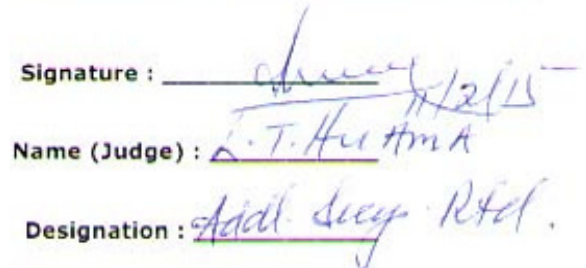 Signature :
11/2/15
Name (Judge) : L.T. HuAmA
Designation : Addl Secy. Rtd.